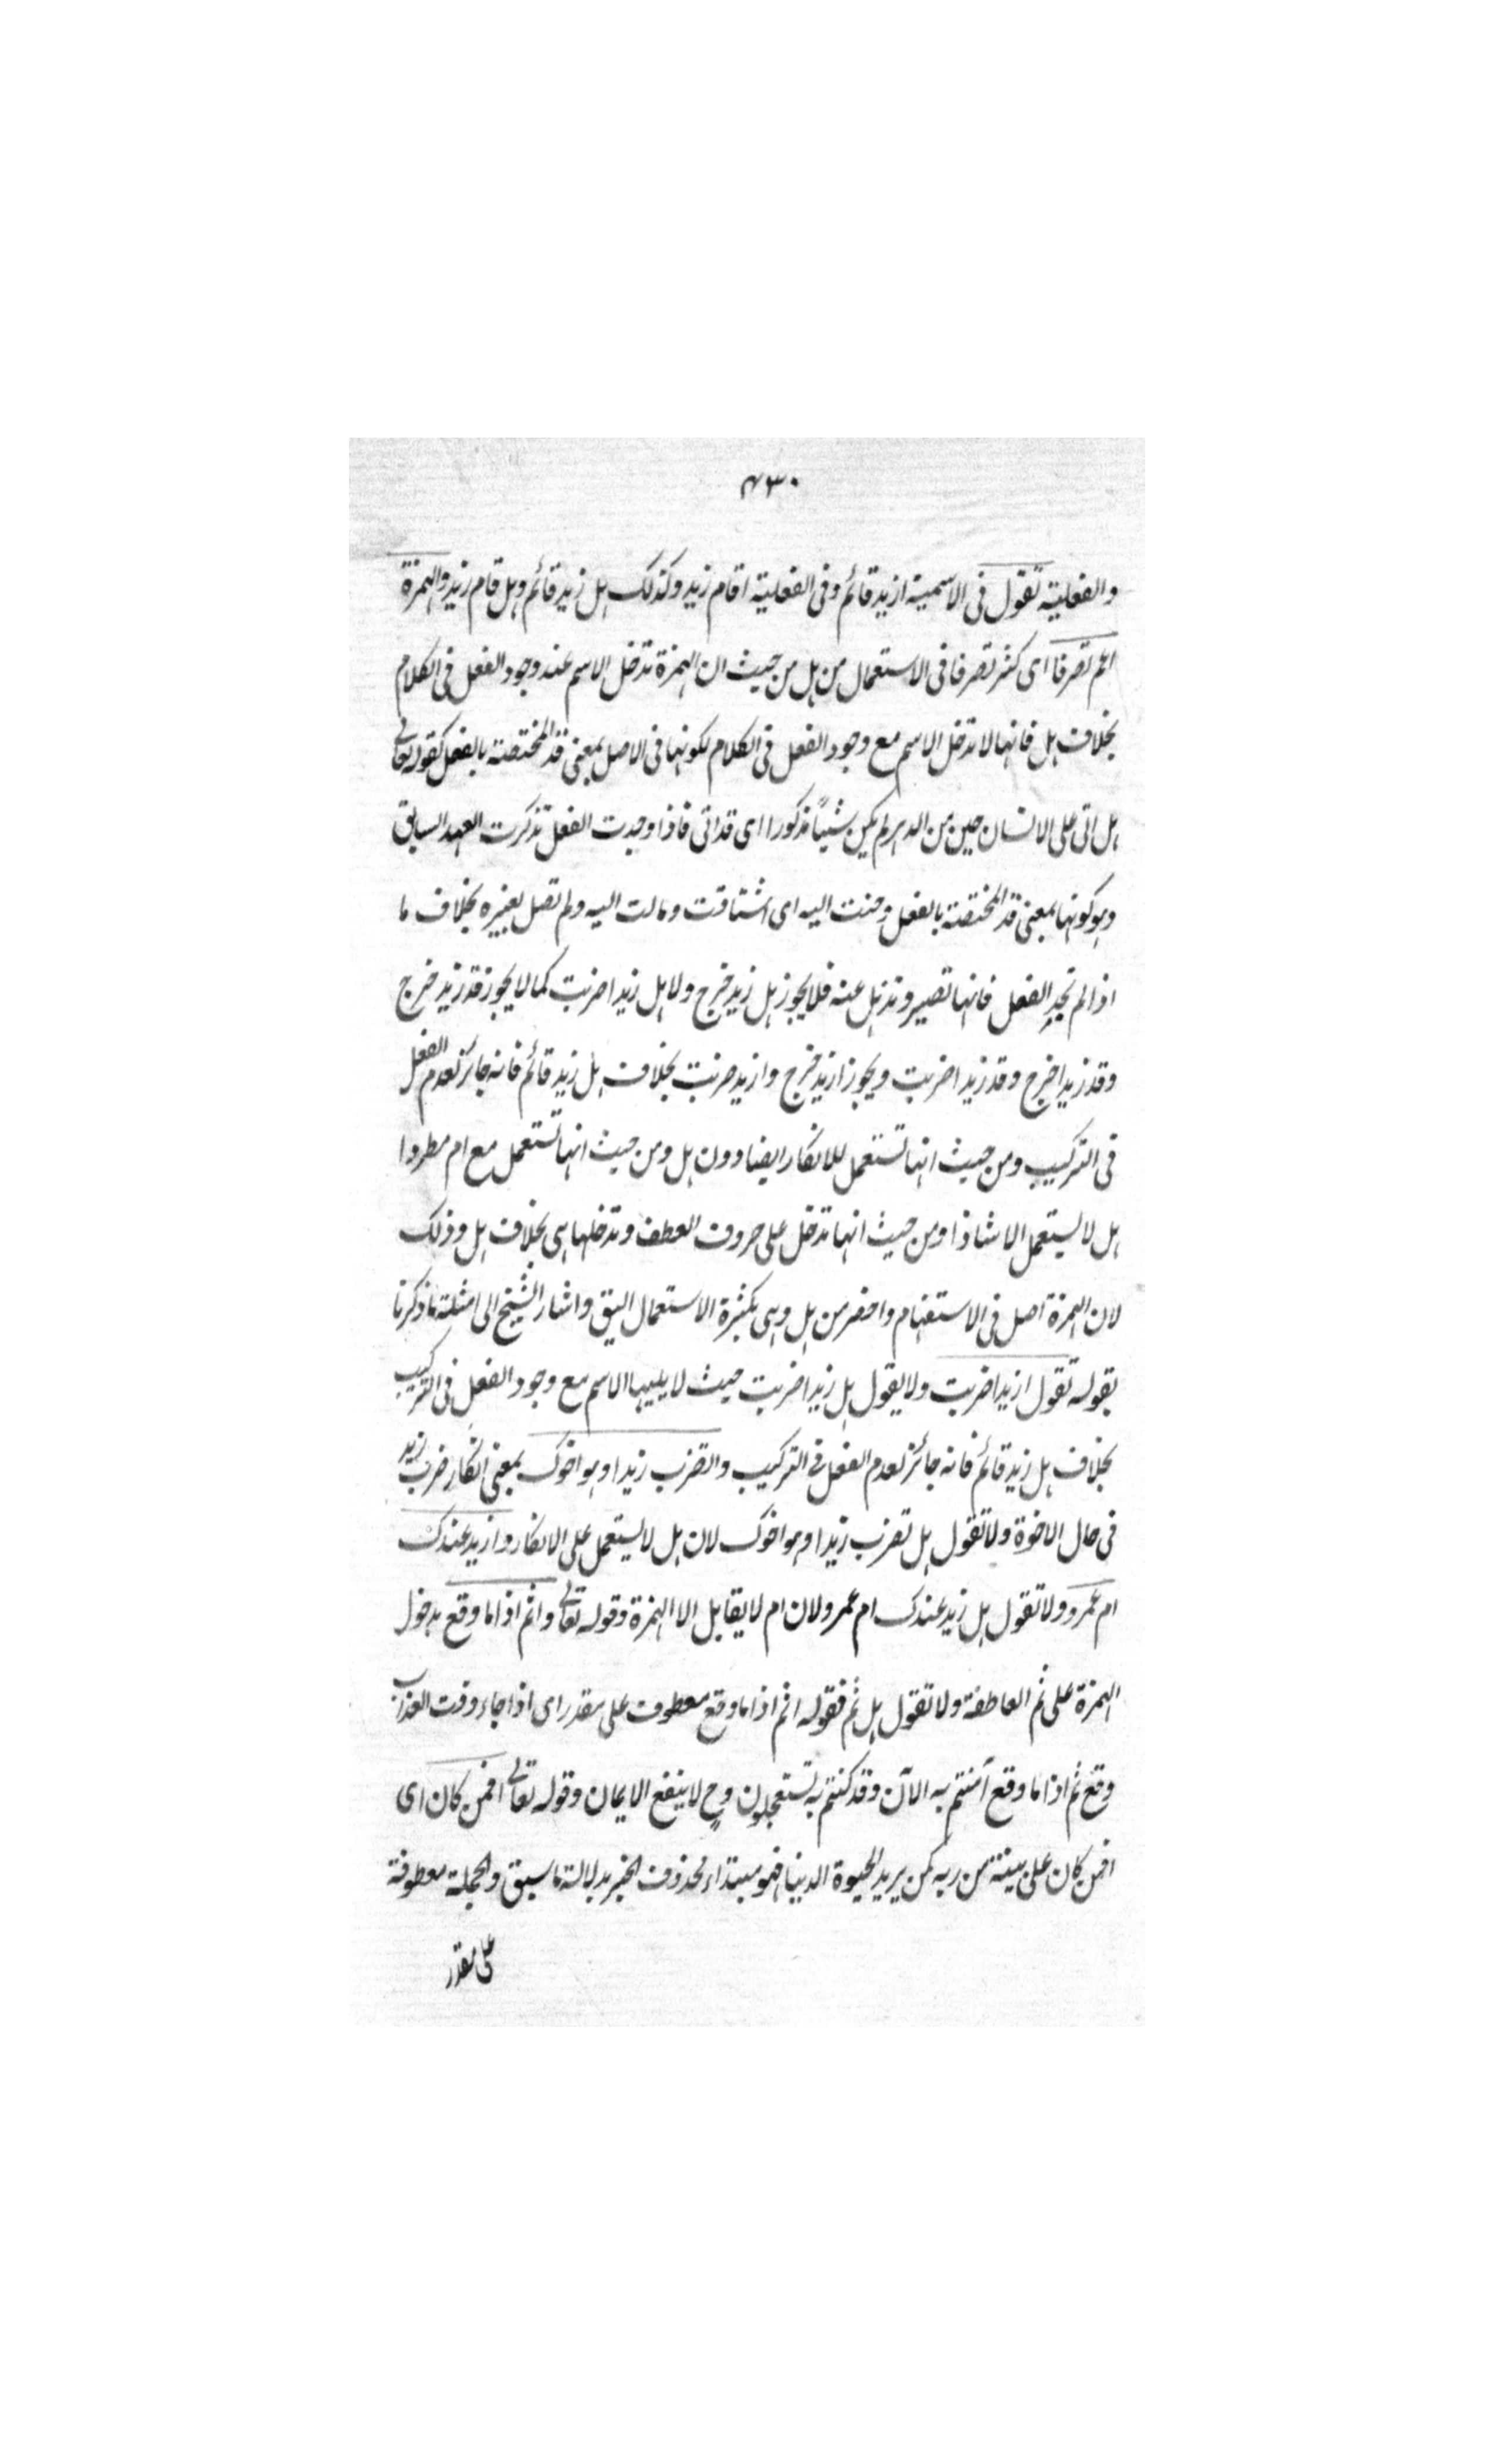 ٤٣٠
والفعلية تقول فى الاسمية ازيد قائم وفى الفعلية اقام زيد وكذلك هل زيد قائم وهل قام زيد والهمزة
اعم تصرفا اى كثر تصرفا فى الاستعمال من هل من حيث ان الهمزة تدخل الاسم عند وجود الفعل فى الكلام
بخلاف هل فانها لا تدخل الاسم مع وجود الفعل فى الكلام لكونها فى الاصل بمعنى قد المختصة بالفعل كقوله تعالى
هل اتى على الانسان حين من الدهر لم يكن شيئاً مذكورا اى قد اتى فاذا وجدت الفعل تذكرت العهد السابق
وهو كونها بمعنى قد المختصة بالفعل وحنت اليه اى اشتاقت ومالت اليه ولم تصل بغيره بخلاف ما
اذا لم تجد الفعل فانها تصير وتذهل عنه فلا يجوز هل زيد خرج ولا هل زيدا ضربت كما لا يجوز قد زيد خرج
وقد زيدا خرج وقد زيدا ضربت ويجوز ازيد خرج وازيد ضربت بخلاف هل زيد قائم فانه جائز لعدم الفعل
فى التركيب ومن حيث انها تستعمل للانكار ايضا دون هل ومن حيث انها تستعمل مع ام مطردا
هل لا يستعمل الا شاذا ومن حيث انها تدخل على حروف العطف وتدخلها هى بخلاف هل وذلك
لان الهمزة اصل فى الاستفهام واخصر من هل وهى بكثرة الاستعمال اليق واشار الشيخ الى امثلة ما ذكرنا
بقوله تقول ازيدا ضربت ولا يقول هل زيدا ضربت حيث لا يليها الاسم مع وجود الفعل فى التركيب
بخلاف هل زيد قائم فانه جائز لعدم الفعل فى التركيب واتضرب زيدا وهو اخوك بمعنى انكار ضرب زيد
فى حال الاخوة ولا تقول هل تضرب زيدا وهو اخوك لان هل لا يستعمل على الانكار وازيد عندك
ام عمرو ولا تقول هل زيد عندك ام عمرو لان ام لا يقابل الا الهمزة وقوله تعالى واثم اذا ما وقع بدخول
الهمزة على ثم العاطفة ولا تقول هل ثم فقوله اثم اذا ما وقع معطوف على مقدر اى اذا جاء وقت العذاب
وقع ثم اذا ما وقع آمنتم به الآن وقد كنتم به تستعجلون وح لا ينفع الايمان وقوله تعالى افمن كان اى
افمن كان على بينة من ربه كمن يريد الحيوة الدنيا فهو مبتداء محذوف الخبر بدلالة ما سبق والجملة معطوفة
على مقدر